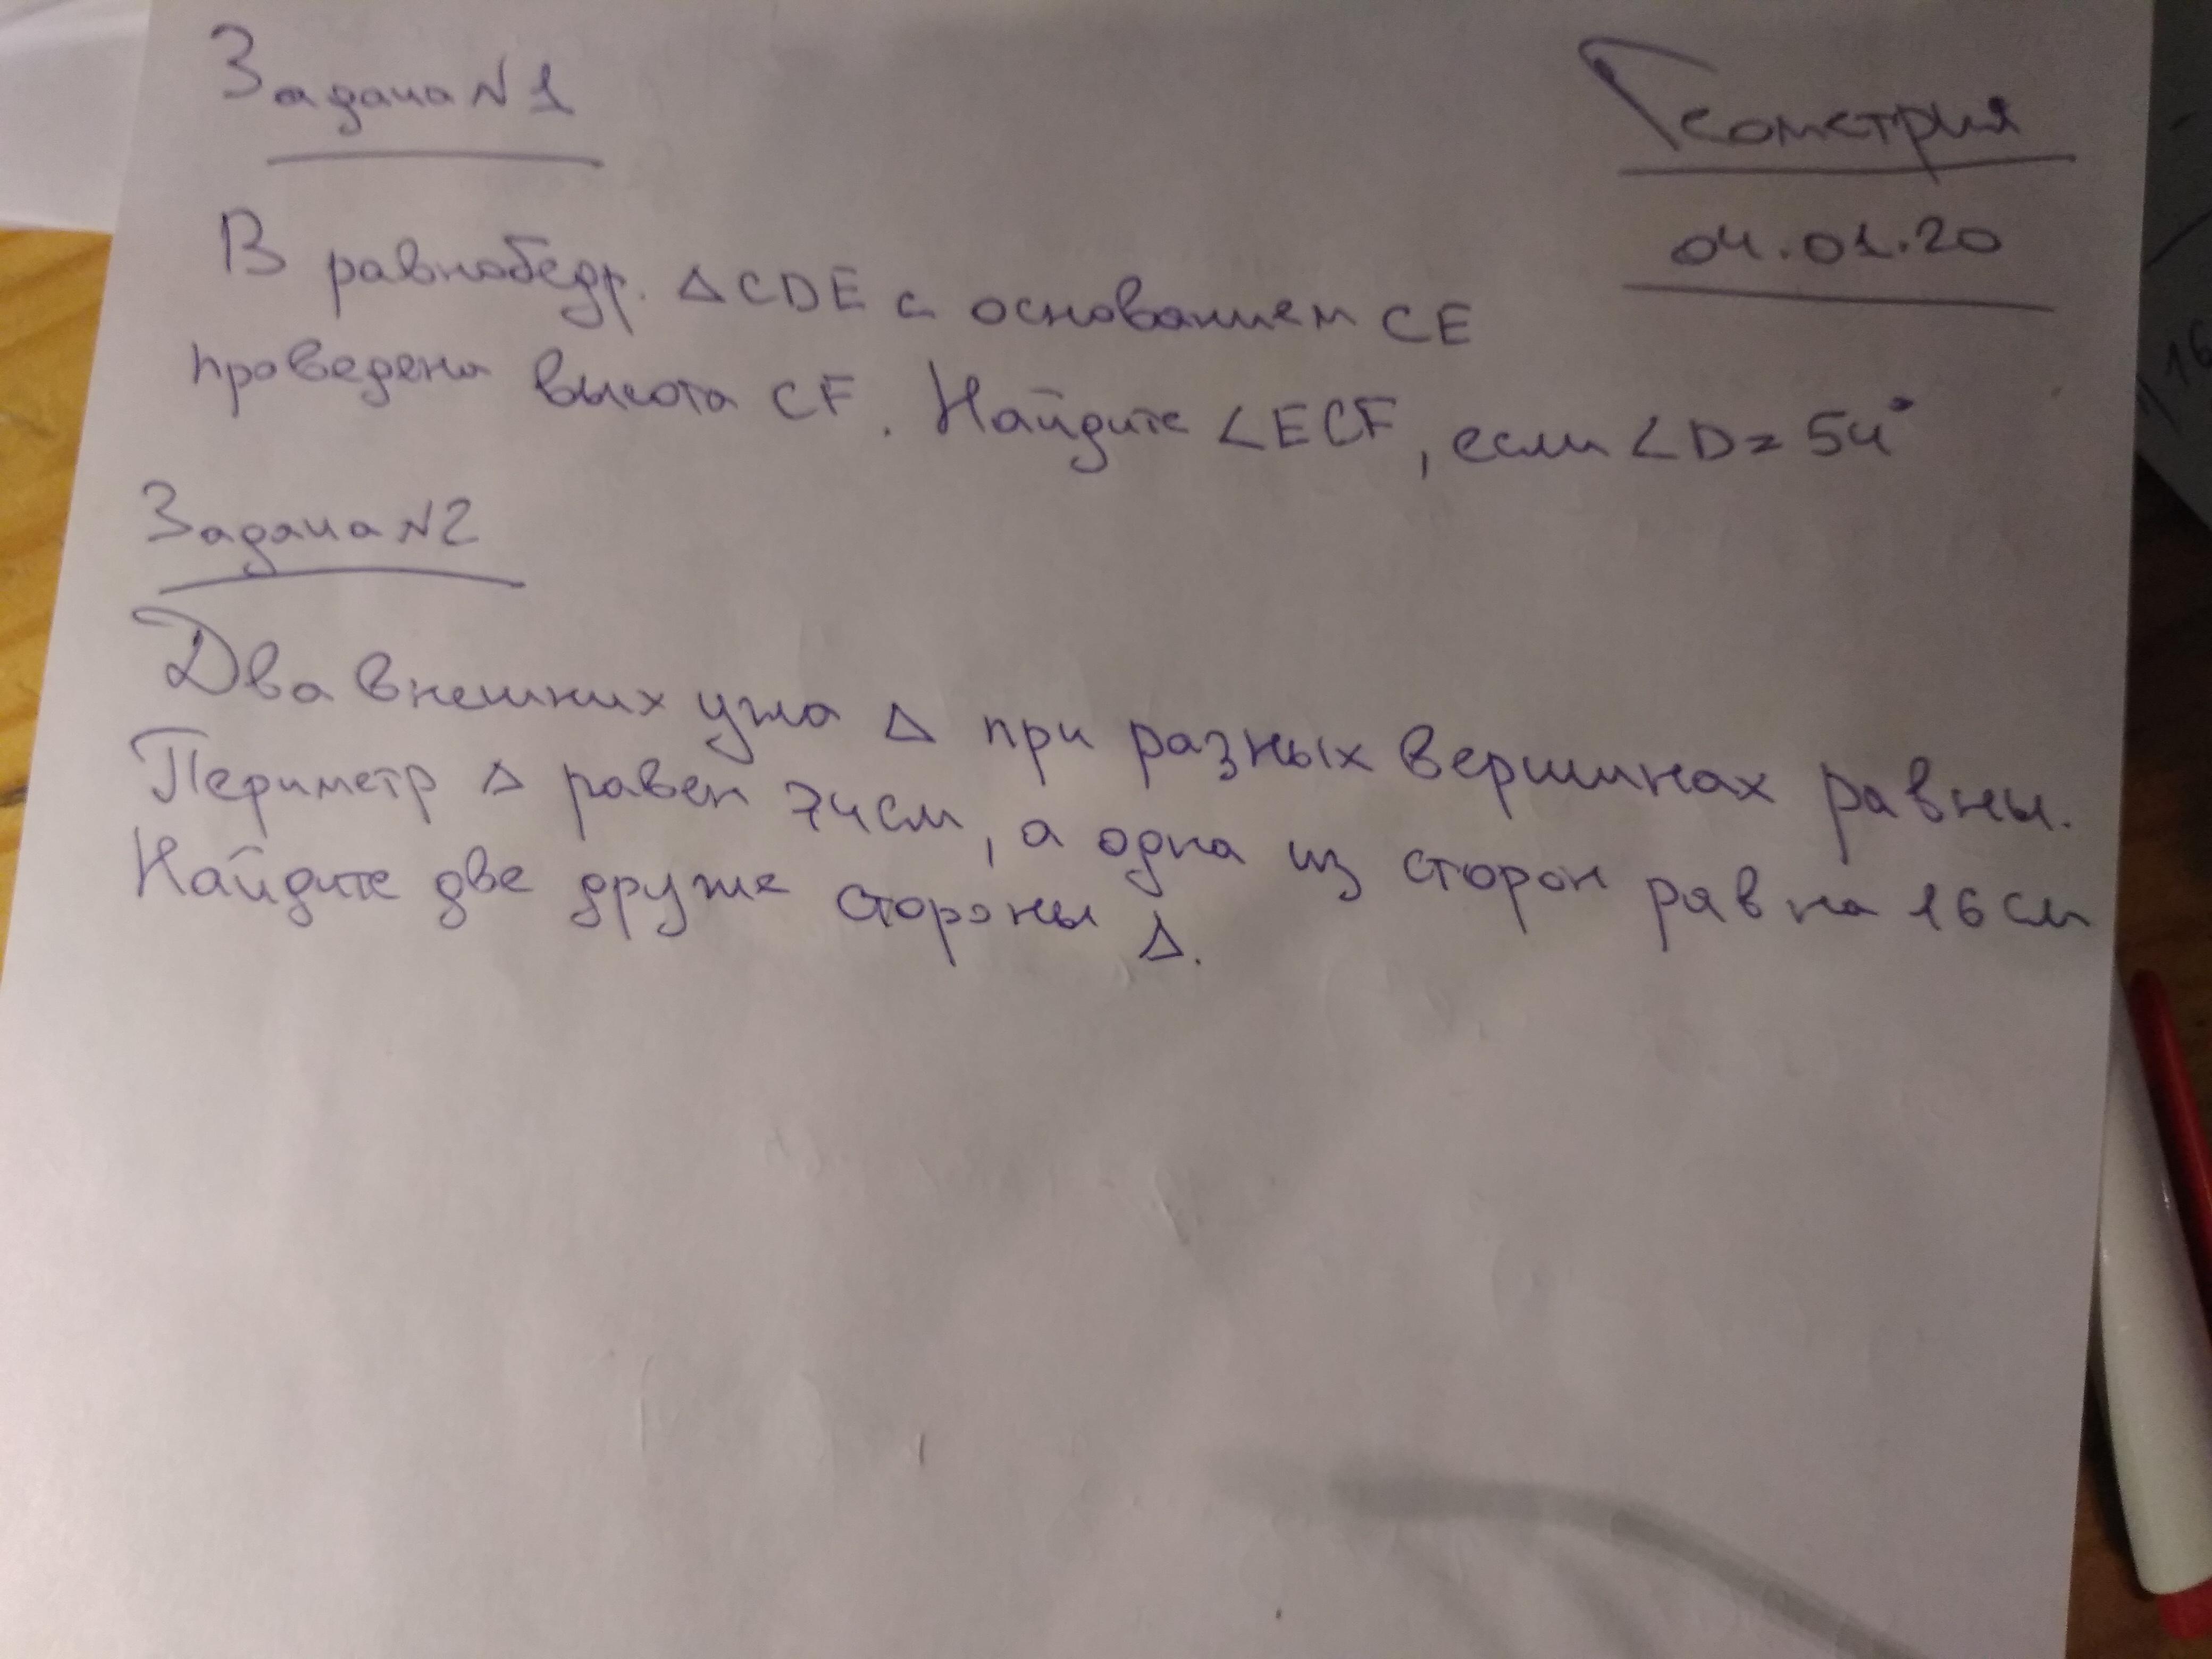 Задача №1
Геометрия
04.01.20
В равнобедр. △CDE с основанием CE
проведена высота CF. Найдите ∠ECF, если ∠D = 54°
Задача №2
Два внешних угла △ при разных вершинах равны.
Периметр △ равен 74см, а одна из сторон равна 16см
Найдите две другие стороны △.